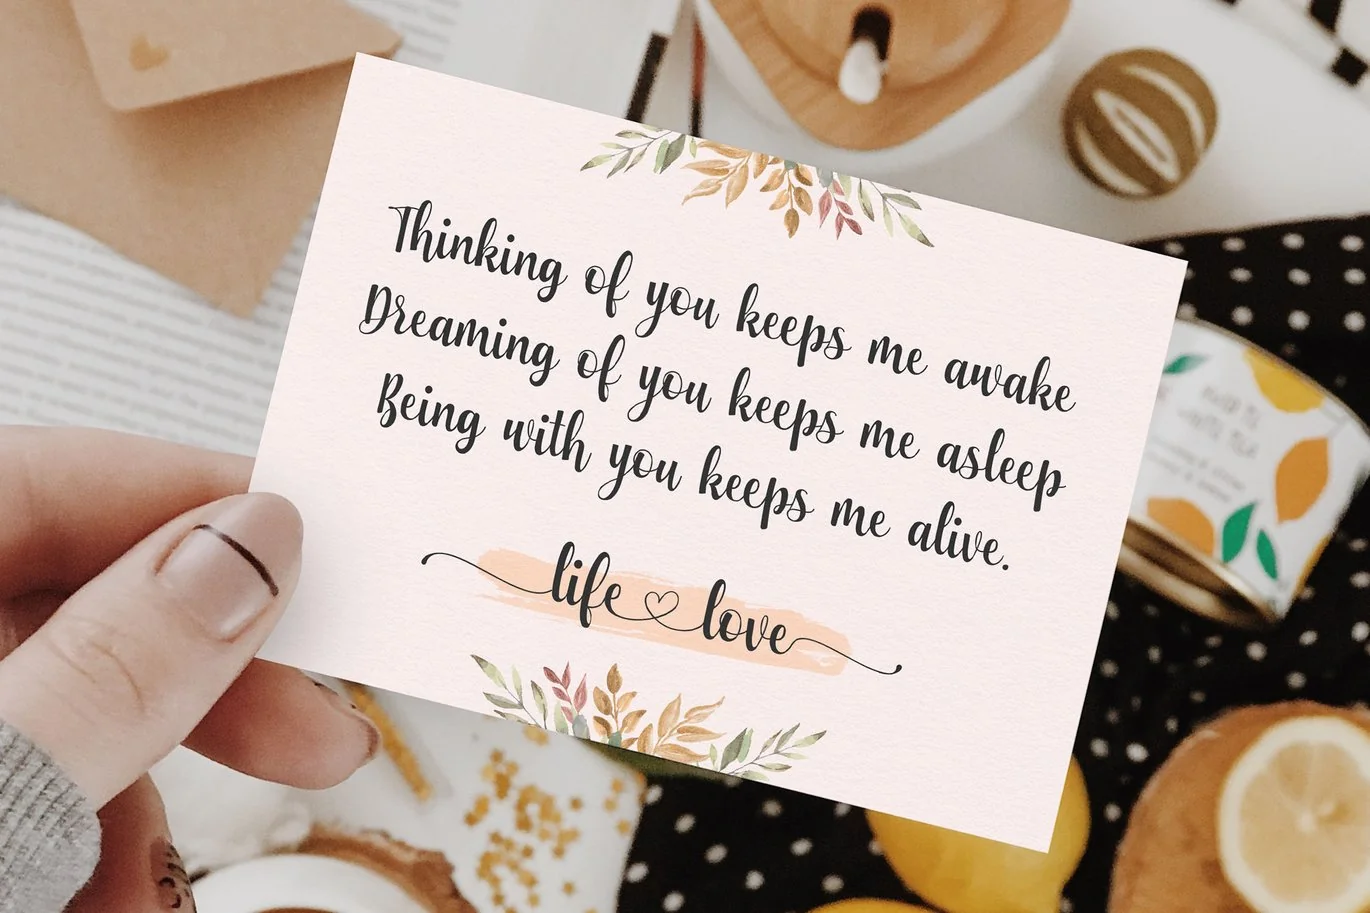 Thinking of you keeps me awake
Dreaming of you keeps me asleep
Being with you keeps me alive.
life love